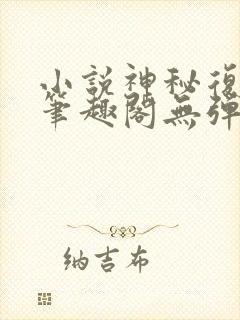 小説神秘復
筆趣閣無彈
纳吉布